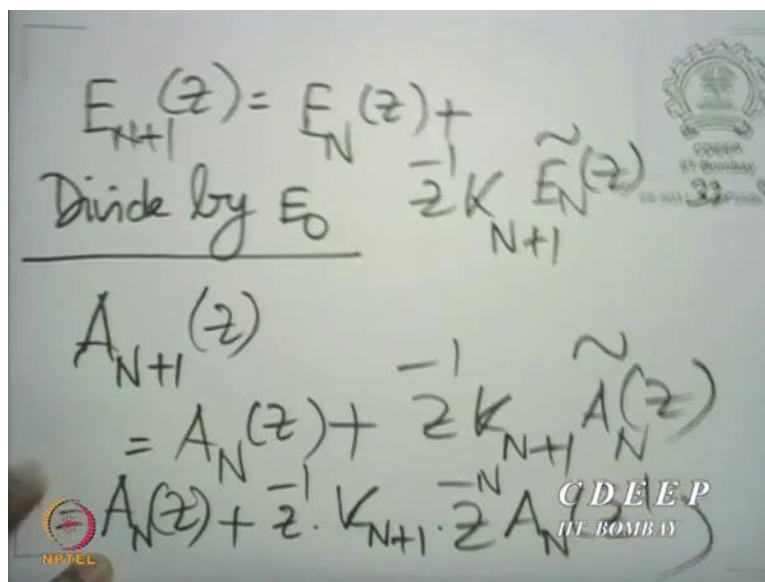 E_{N+1}(z) = E_N(z) +
z^{-1} K_{N+1} Ẽ_N(z)
Divide by E_0
A_{N+1}(z)
= A_N(z) + z^{-1} K_{N+1} Ã_N(z)
= A_N(z) + z^{-1} . K_{N+1} . z^{-N} A_N(z^{-1})
CDEEP
IIT Bombay
CDEEP
IIT BOMBAY
NPTEL